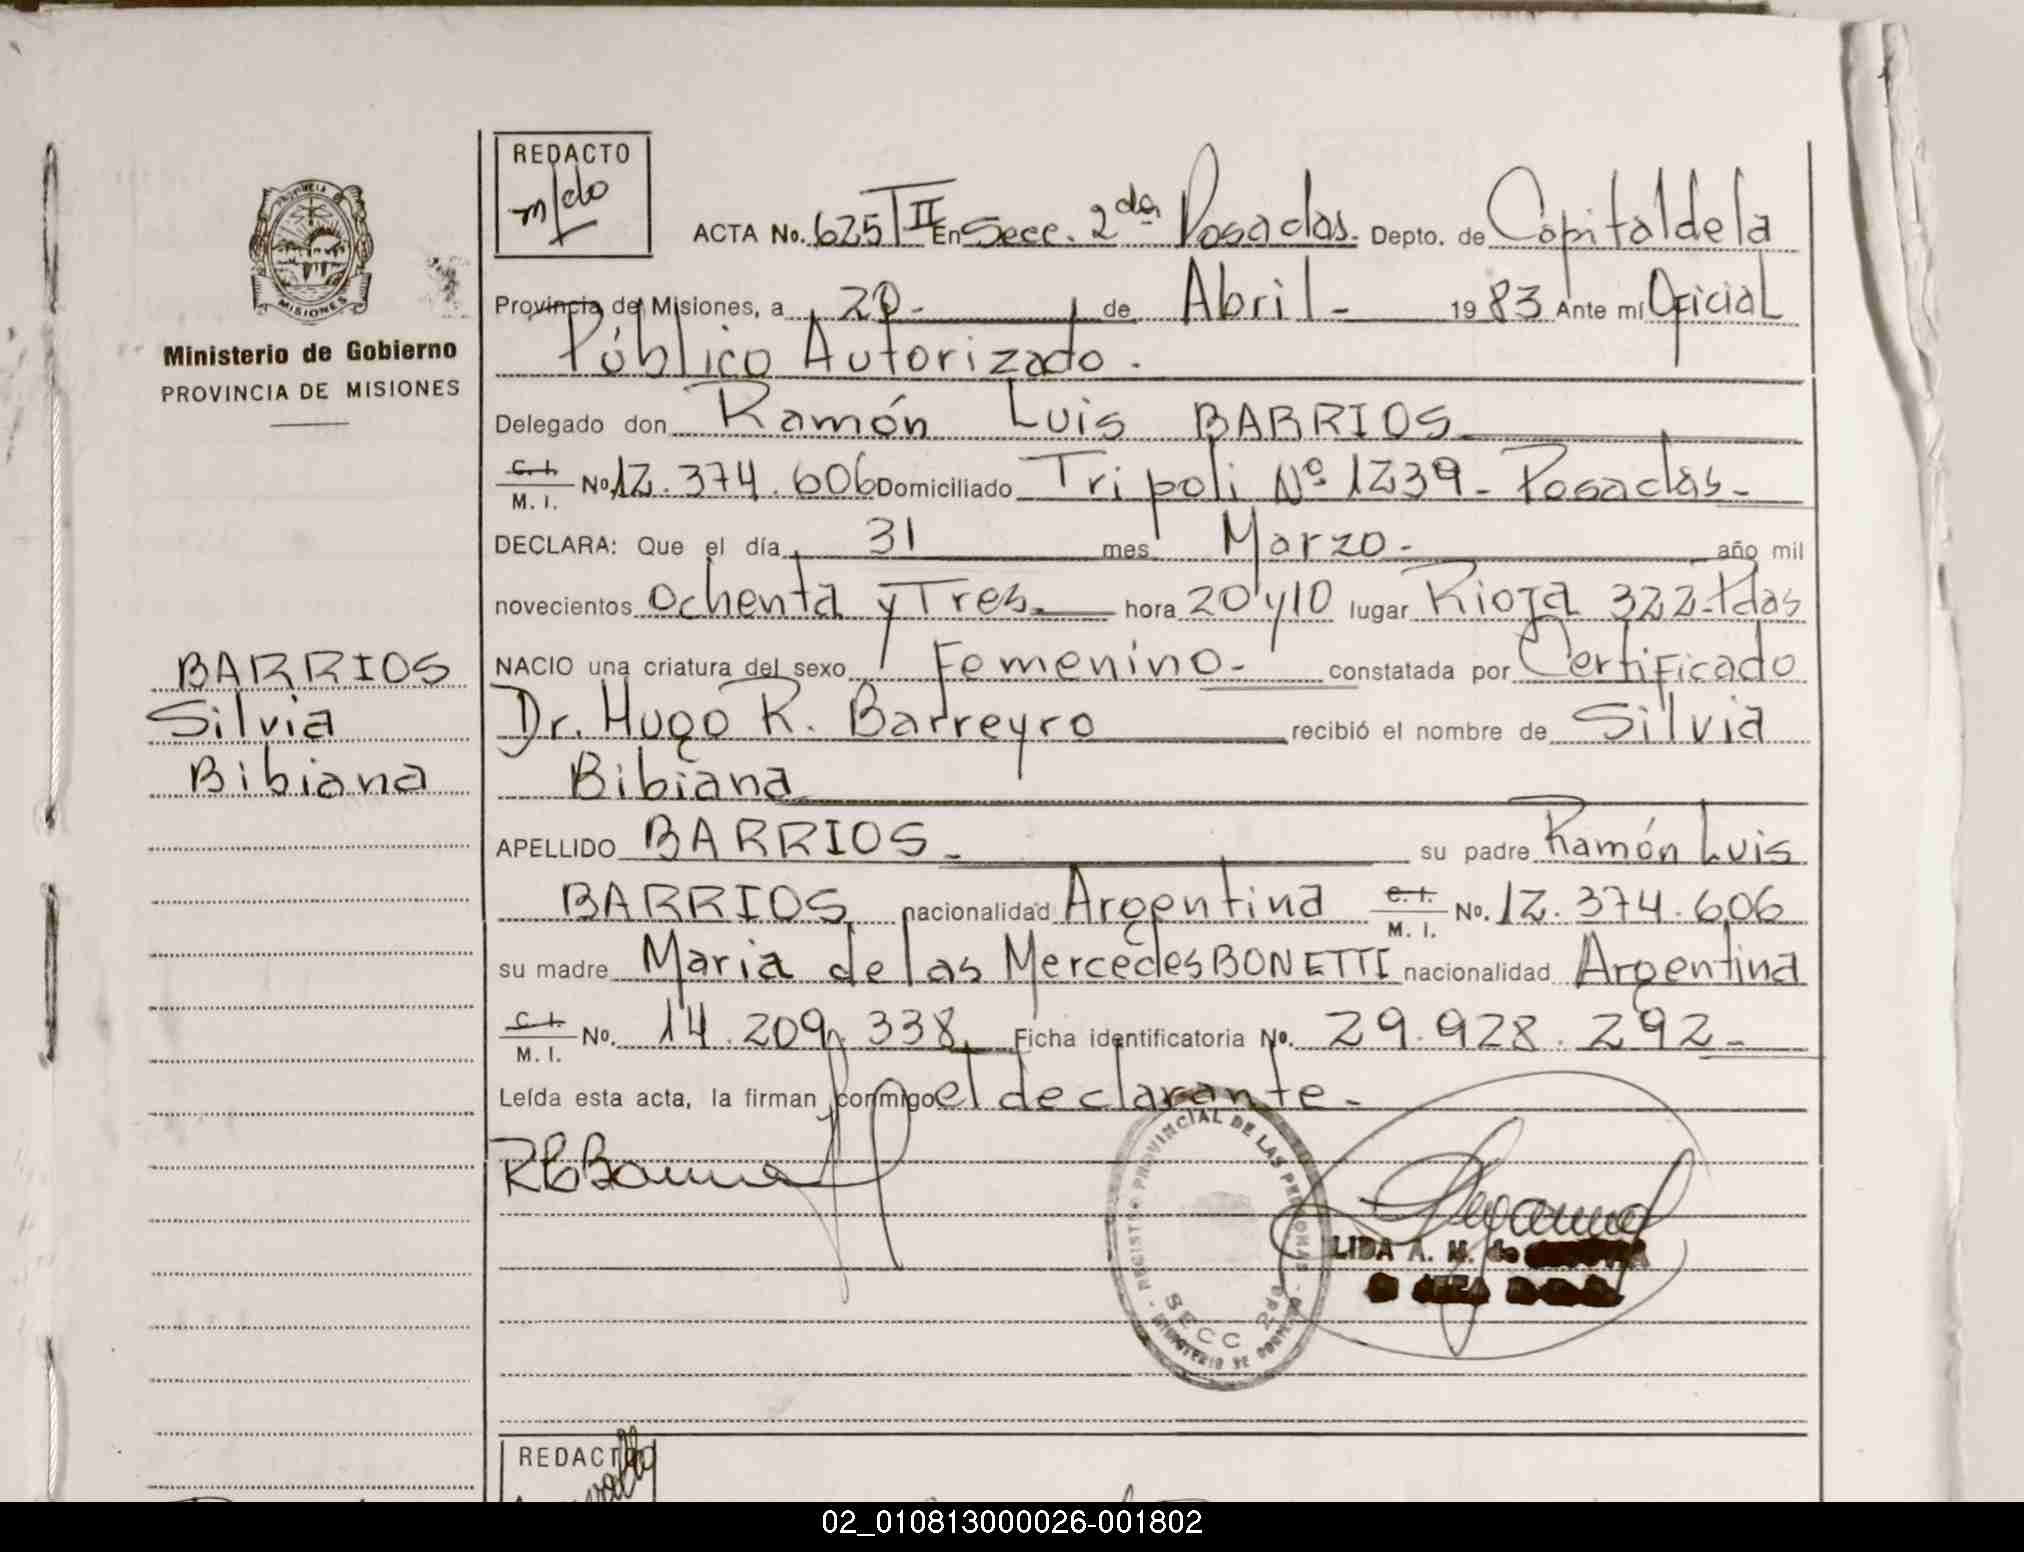 REDACTO
ACTA No. 625 T II En Secc. 2da Posadas. Depto. de Capital de la
Provincia de Misiones, a 20- de Abril- 1983 Ante mí Oficial
Público Autorizado.
Ministerio de Gobierno
PROVINCIA DE MISIONES
Delegado don Ramón Luis BARRIOS
C. I.
M. I. No. 12.374.606 Domiciliado Tripoli Nº 1239- Posadas-
DECLARA: Que el día 31 mes Marzo- año mil
novecientos ochenta y Tres hora 20 y 10 lugar Rioja 322-Pdas
NACIO una criatura del sexo Femenino- constatada por Certificado
Dr. Hugo R. Barreyro recibió el nombre de Silvia
Bibiana
BARRIOS
Silvia
Bibiana
APELLIDO BARRIOS- su padre Ramón Luis
BARRIOS nacionalidad Argentina C. I.
M. I. No. 12.374.606
su madre Maria de las Mercedes BONETTI nacionalidad Argentina
C. I.
M. I. No. 14.209.338 Ficha identificatoria No. 29.928.292-
Leída esta acta, la firman conmigo el declarante-
REGISTRO PROVINCIAL DE LAS PERSONAS
SECC 2da
MINISTERIO DE GOBIERNO
LIDA A. M. de
REDACTO
PROVINCIA DE
MISIONES
02_010813000026-001802